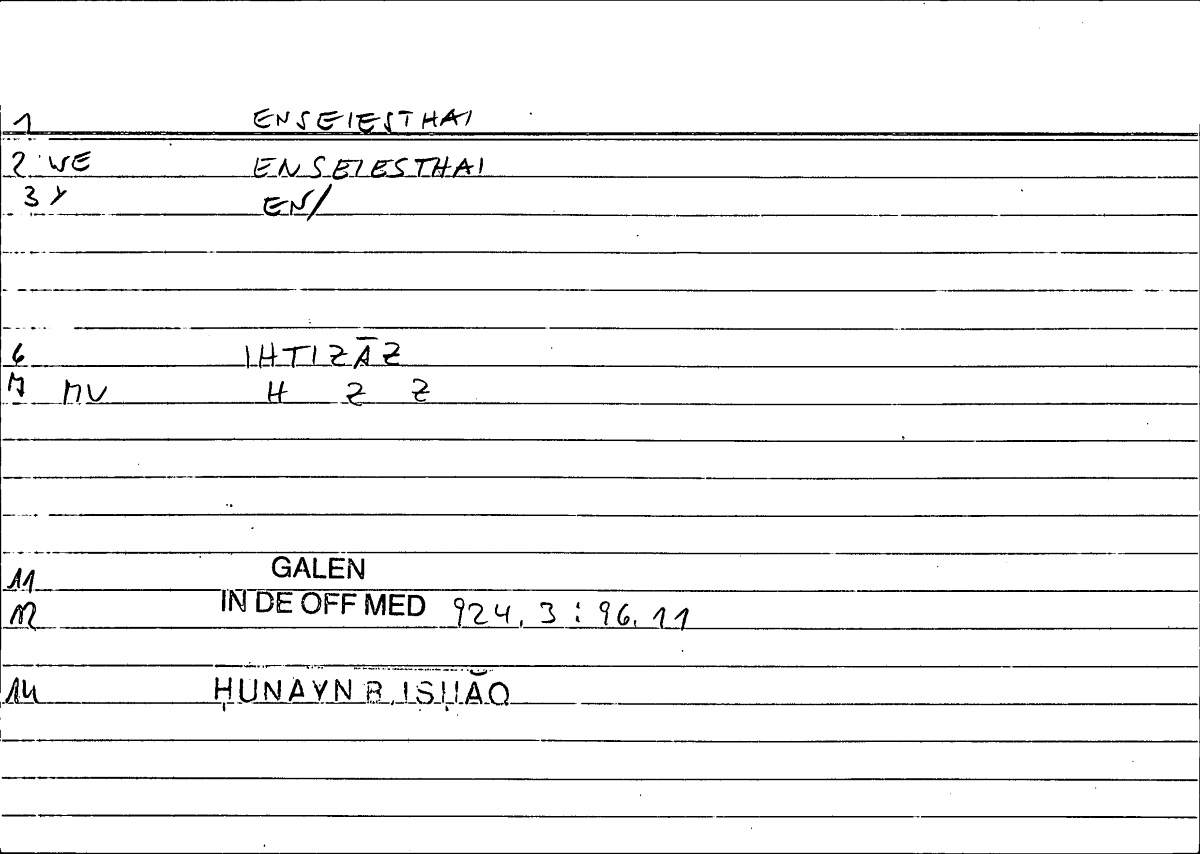 1 ENSEIESTHAI
2 WE ENSEIESTHAI
3 Y EN/
6 IHTIZĀZ
7 MV H Z Z
11 GALEN
12 IN DE OFF MED 924.3 : 96.11
14 ḤUNAYN B. ISḤĀQ